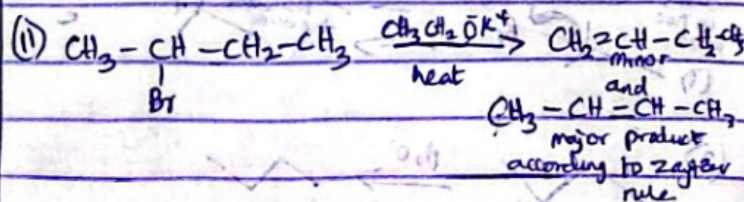 (11) CH₃ – CH – CH₂ – CH₃ CH₃CH₂ŌK⁺ → CH₂=CH–CH₂-CH₃
Br heat minor
and
CH₃ – CH = CH – CH₃
major product
according to zaytzev
rule